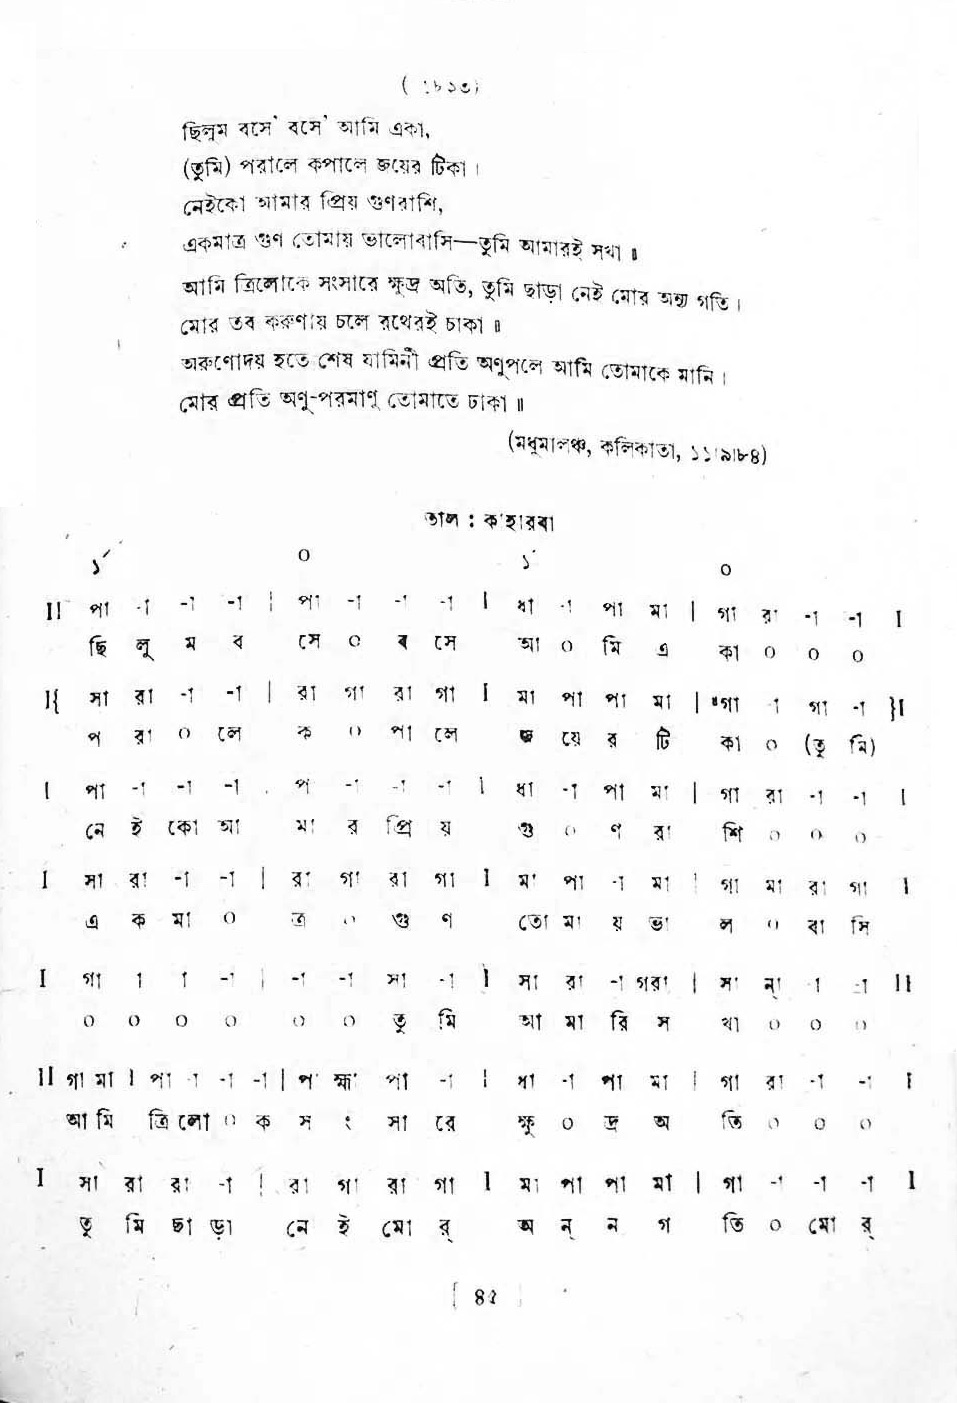 ছিলুম বসে' বসে' আমি একা,
(তুমি) পরালে কপালে জয়ের টিকা।
নেইকো আমার প্রিয় গুণরাশি,
একমাত্র গুণ তোমায় ভালোবাসি—তুমি আমারই সখা॥
আমি ত্রিলোকে সংসারে ক্ষুদ্র অতি, তুমি ছাড়া নেই মোর অন্য গতি।
মোর তব করুণায় চলে রথেরই চাকা॥
অরুণোদয় হতে শেষ যামিনী প্রতি অণুপলে আমি তোমাকে মানি।
মোর প্রতি অণু-পরমাণু তোমাতে ঢাকা॥
(মধুমালঞ্চ, কলিকাতা, ১১।৯।৮৪)
তাল : কাহারবা
১´ ০ ১´ ০
II পা -া -া -া | পা -া -া -া I ধা -া পা মা | গা রা -া -া I
ছি লু ম ব সে ০ ব সে আ ০ মি এ কা ০ ০ ০
I{ সা রা -া -া | রা গা রা গা I মা পা পা মা | গা া গা -া }I
প রা ০ লে ক ০ পা লে জ য়ে র টি কা ০ (তু মি)
I পা -া -া -া প -া -া -া I ধা -া পা মা | গা রা -া -া I
নে ই কো আ মা র প্রি য় গু ০ ণ রা শি ০ ০ ০
I সা রা -া -া | রা গা রা গা I মা পা -া মা | গা মা রা গা I
এ ক মা ০ ত্র ০ গু ণ তো মা য় ভা ল ০ বা সি
I গা া া -া | -া -া সা -া I সা রা -া গরা | সা ন্া -া -া II
০ ০ ০ ০ ০ ০ তু মি আ মা রি স খা ০ ০ ০
II গা মা I পা -া -া -া | পা হ্মা পা -া I ধা -া পা মা | গা রা -া -া I
আ মি ত্রি লো ০ ক স ং সা রে ক্ষু ০ দ্র অ তি ০ ০ ০
I সা রা রা -া | রা গা রা গা I মা পা পা মা | গা -া -া -া I
তু মি ছা ড়া নে ই মো র্ অ ন্ ন গ তি ০ মো র্